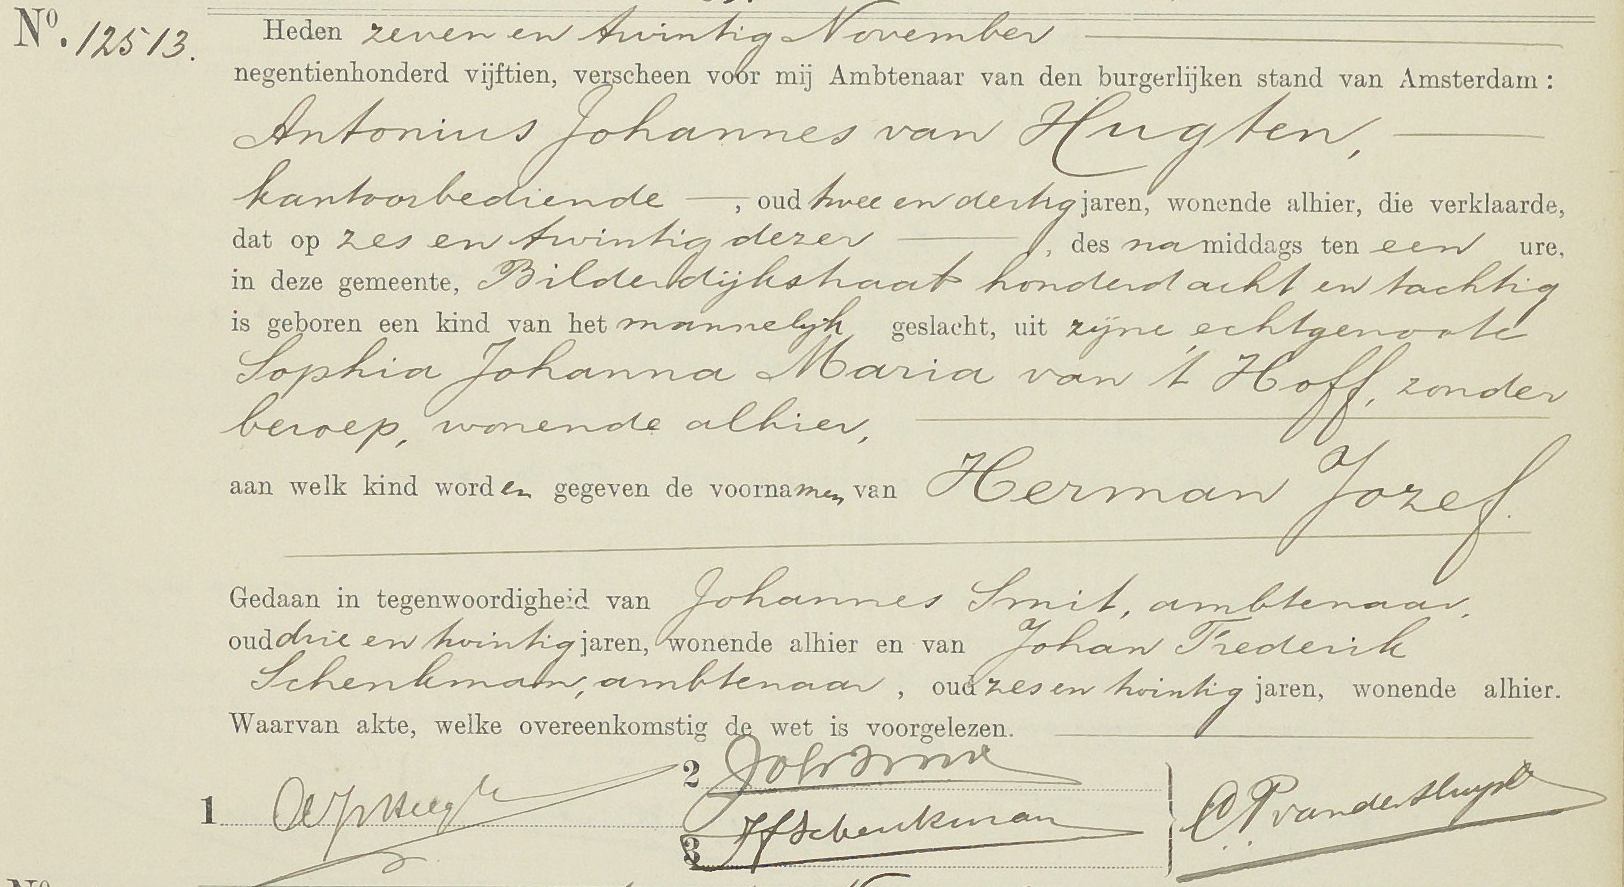 Nº. 12513.
Heden zeven en twintig November
negentienhonderd vijftien, verscheen voor mij Ambtenaar van den burgerlijken stand van Amsterdam:
Antonius Johannes van Hugten,
kantoorbediende, oud twee en dertig jaren, wonende alhier, die verklaarde,
dat op zes en twintig dezer, des namiddags ten een ure,
in deze gemeente, Bilderdijkstraat honderd acht en tachtig
is geboren een kind van het mannelijk geslacht, uit zijne echtgenoote
Sophia Johanna Maria van 't Hoff, zonder
beroep, wonende alhier,
aan welk kind worden gegeven de voornamen van Herman Jozef.
Gedaan in tegenwoordigheid van Johannes Smit, ambtenaar,
oud drie en twintig jaren, wonende alhier en van Johan Frederik
Schenkman, ambtenaar, oud zes en twintig jaren, wonende alhier.
Waarvan akte, welke overeenkomstig de wet is voorgelezen.
1
2 Joh Smit
3 JFSchenkman